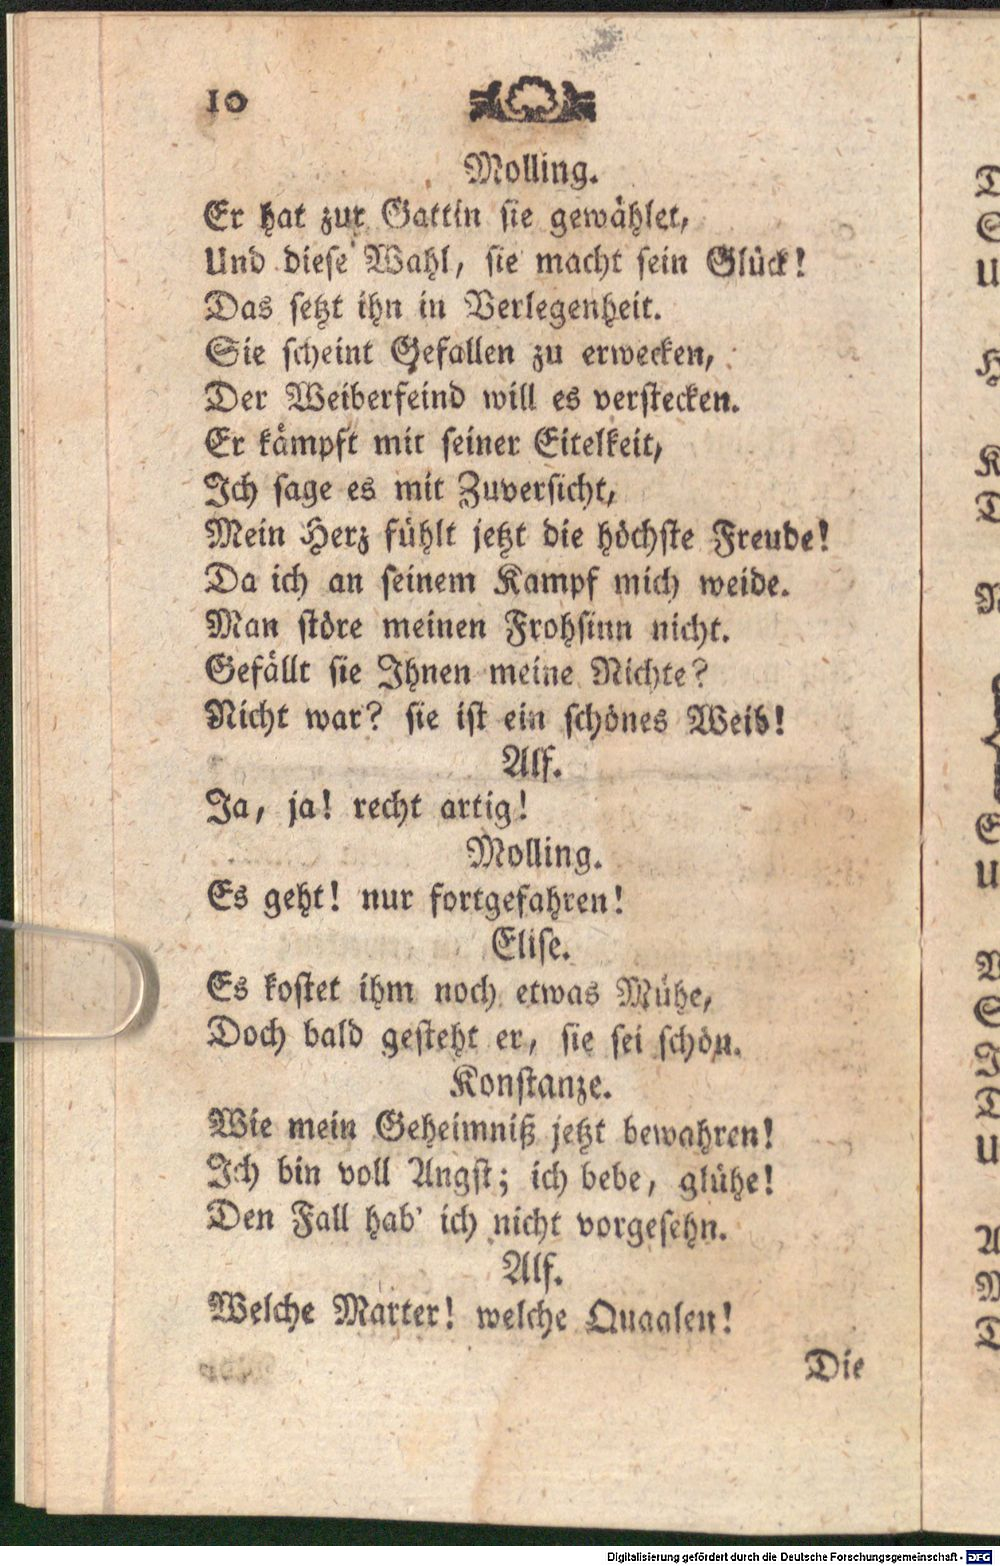 10
Molling.
Er hat zur Gattin sie gewählet,
Und diese Wahl, sie macht sein Glück!
Das setzt ihn in Verlegenheit.
Sie scheint Gefallen zu erwecken,
Der Weiberfeind will es verstecken.
Er kämpft mit seiner Eitelkeit,
Ich sage es mit Zuversicht,
Mein Herz fühlt jetzt die höchste Freude!
Da ich an seinem Kampf mich weide.
Man störe meinen Frohsinn nicht.
Gefällt sie Ihnen meine Nichte?
Nicht war? sie ist ein schönes Weib!
Alf.
Ja, ja! recht artig!
Molling.
Es geht! nur fortgefahren!
Elise.
Es kostet ihm noch etwas Mühe,
Doch bald gesteht er, sie sei schön.
Konstanze.
Wie mein Geheimniß jetzt bewahren!
Ich bin voll Angst; ich bebe, glühe!
Den Fall hab' ich nicht vorgesehn.
Alf.
Welche Marter! welche Quaalen!
Die
Digitalisierung gefördert durch die Deutsche Forschungsgemeinschaft - DFG